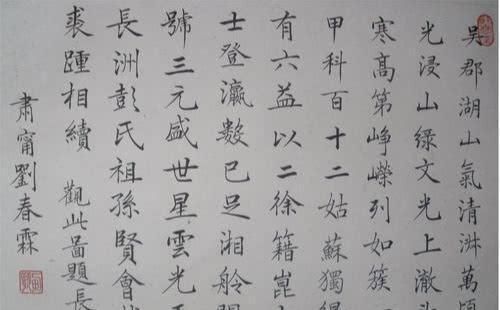 吳郡湖山氣清淋萬頃
光浸山綠文光上澈斗
寒高第崢嶸列如簇
甲科百十二姑蘇獨得
有六益以二徐籍崑
士登瀛數已足湘舲
號三元盛世星雲光
長洲彭氏祖孫賢會
裘踵相續 觀此啚題長
肅甯劉春霖